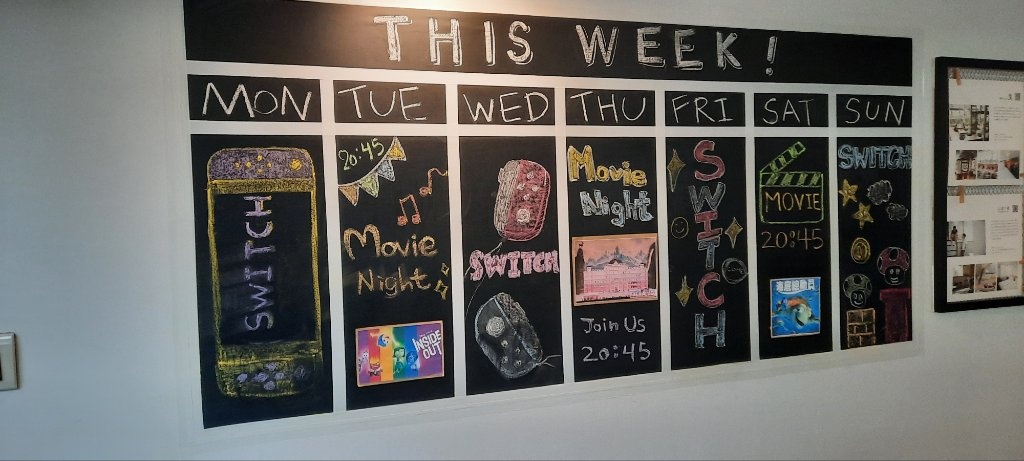 THIS WEEK!
MON TUE WED THU FRI SAT SUN
SWITCH
20:45
Movie
Night
INSIDE
OUT
SWITCH
Movie
Night
Join Us
20:45
SWITCH
MOVIE
20:45
海底總動員
SWITCH